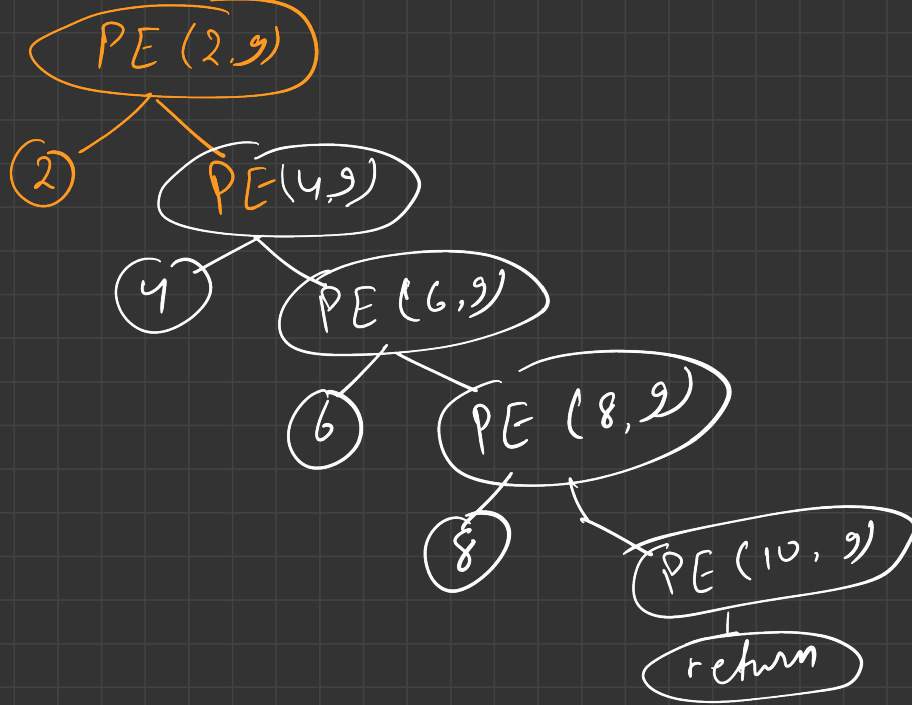 PE (2,9)
2
PE (4,9)
4
PE (6,9)
6
PE (8,9)
8
PE (10, 9)
return